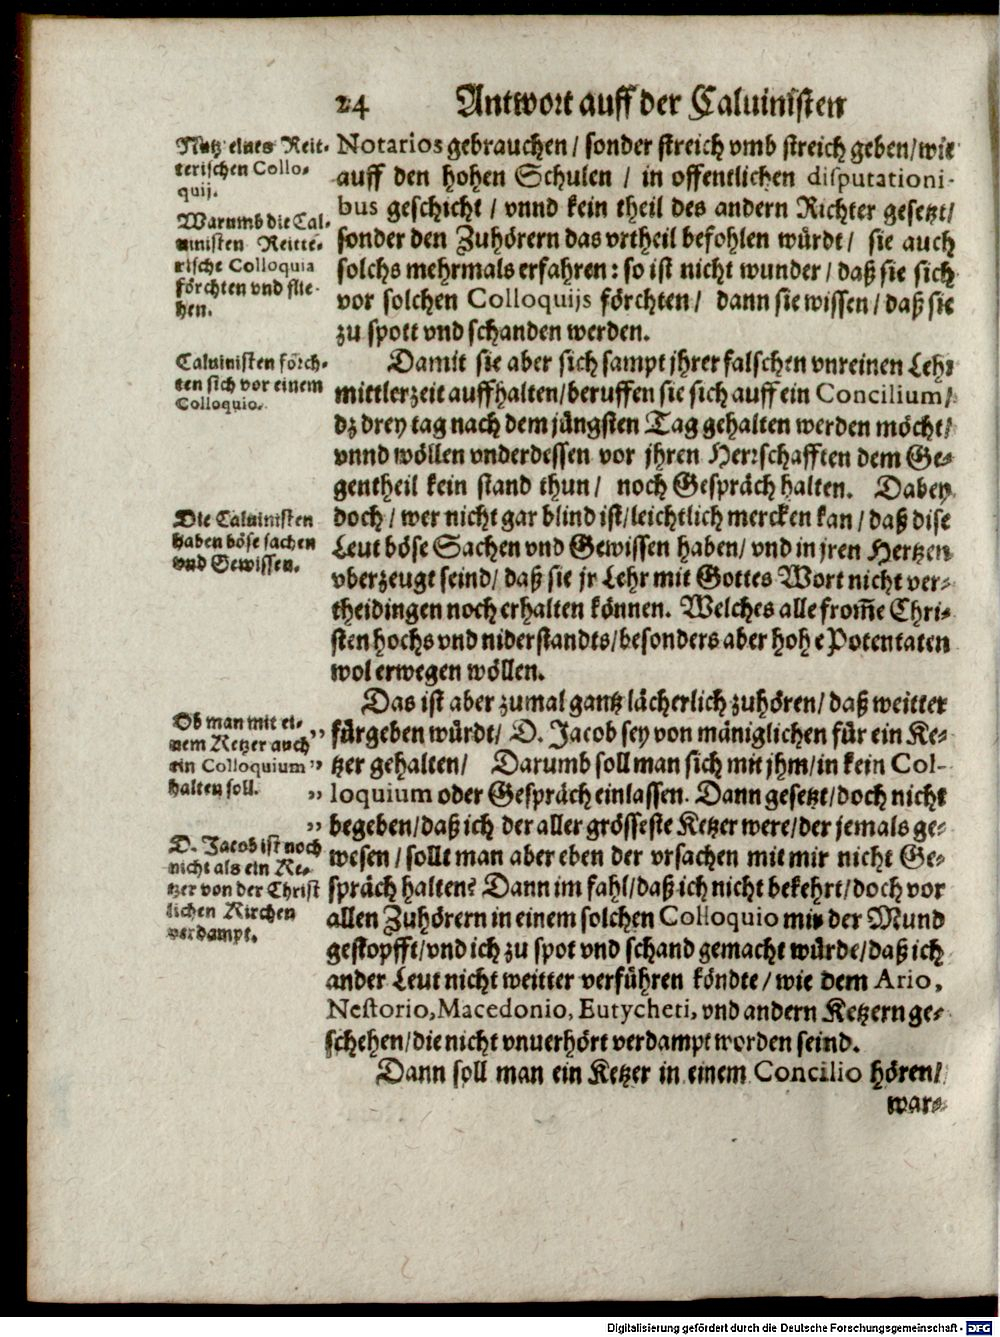 24 Antwort auff der Caluinisten
Nutz eines Reit-
terischen Collo-
quij.
Warumb die Cal-
uinisten Reitte-
rische Colloquia
förchten vnd flie-
hen.
Notarios gebrauchen / sonder streich vmb streich geben/wie
auff den hohen Schulen / in offentlichen disputationi-
bus geschicht / vnnd kein theil des andern Richter gesetzt/
sonder den Zuhörern das vrtheil befohlen würdt / sie auch
solchs mehrmals erfahren: so ist nicht wunder / daß sie sich
vor solchen Colloquijs förchten / dann sie wissen / daß sie
zu spott vnd schanden werden.
Caluinisten förch-
ten sich vor einem
Colloquio.
Damit sie aber sich sampt jhrer falschen vnreinen Lehr
mittlerzeit auffhalten/beruffen sie sich auff ein Concilium/
dz drey tag nach dem jüngsten Tag gehalten werden möcht/
vnnd wöllen vnderdessen vor jhren Herrschafften dem Ge-
gentheil kein stand thun / noch Gespräch halten. Dabey
Die Caluinisten
haben böse sachen
vnd Gewissen.
doch / wer nicht gar blind ist/leichtlich mercken kan / daß dise
Leut böse Sachen vnd Gewissen haben/ vnd in jren Hertzen
vberzeugt seind/ daß sie jr Lehr mit Gottes Wort nicht ver-
theidingen noch erhalten können. Welches alle from̃e Chri-
sten hochs vnd niderstandts/besonders aber hohe Potentaten
wol erwegen wöllen.
Das ist aber zumal gantz lächerlich zuhören/ daß weitter
Ob man mit ei-
nem Ketzer auch
ein Colloquium
halten soll.
„ fürgeben würdt/ D. Jacob sey von mäniglichen für ein Ke-
„ tzer gehalten/ Darumb soll man sich mit jhm/in kein Col-
„ loquium oder Gespräch einlassen. Dann gesetzt/doch nicht
„ begeben/daß ich der aller grösseste Ketzer were/der jemals ge-
D. Jacob ist noch
nicht als ein Ke-
tzer von der Christ
lichen Kirchen
verdampt.
wesen / sollt man aber eben der vrsachen mit mir nicht Ge-
spräch halten? Dann im fahl/daß ich nicht bekehrt/doch vor
allen Zuhörern in einem solchen Colloquio mir der Mund
gestopfft/vnd ich zu spot vnd schand gemacht würde/daß ich
ander Leut nicht weitter verführen köndte / wie dem Ario,
Nestorio, Macedonio, Eutycheti, vnd andern Ketzern ge-
schehen/die nicht vnuerhört verdampt worden seind.
Dann soll man ein Ketzer in einem Concilio hören/
war-
Digitalisierung gefördert durch die Deutsche Forschungsgemeinschaft - DFG